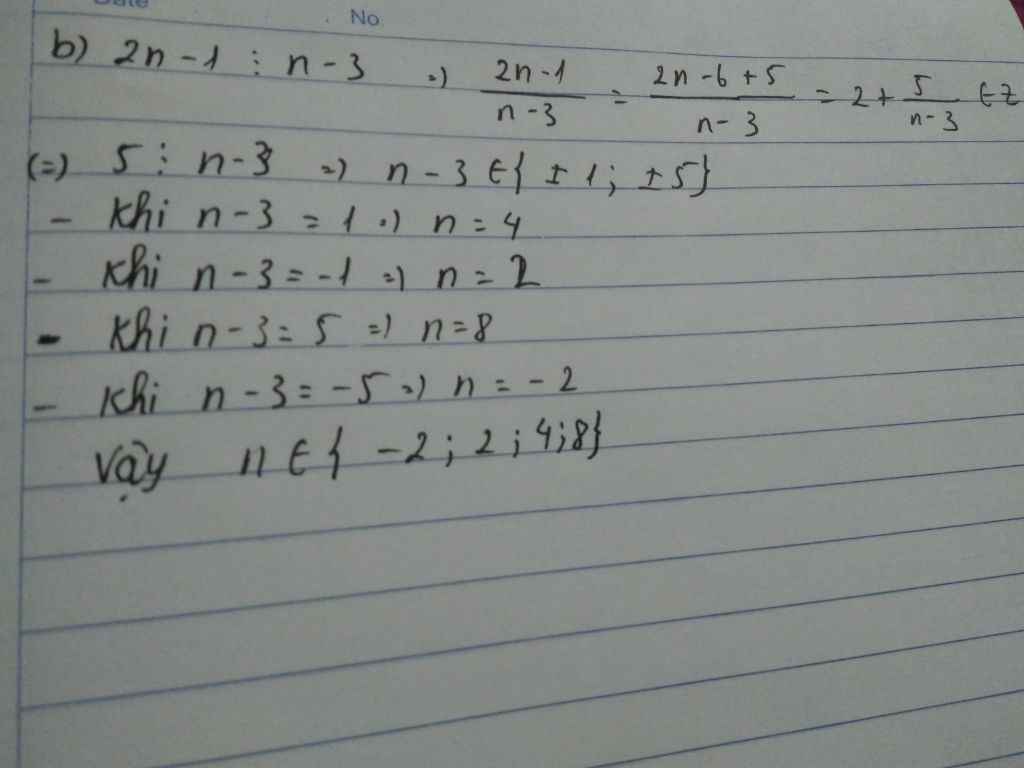 Date No
b) 2n - 1 ⋮ n - 3 =) \frac{2n-1}{n-3} = \frac{2n-6+5}{n-3} = 2 + \frac{5}{n-3} ∈ Z
(=) 5 ⋮ n - 3 =) n - 3 ∈ { ± 1 ; ± 5}
- Khi n - 3 = 1 =) n = 4
- Khi n - 3 = -1 =) n = 2
- Khi n - 3 = 5 =) n = 8
- Khi n - 3 = -5 =) n = -2
Vậy n ∈ { -2 ; 2 ; 4 ; 8}